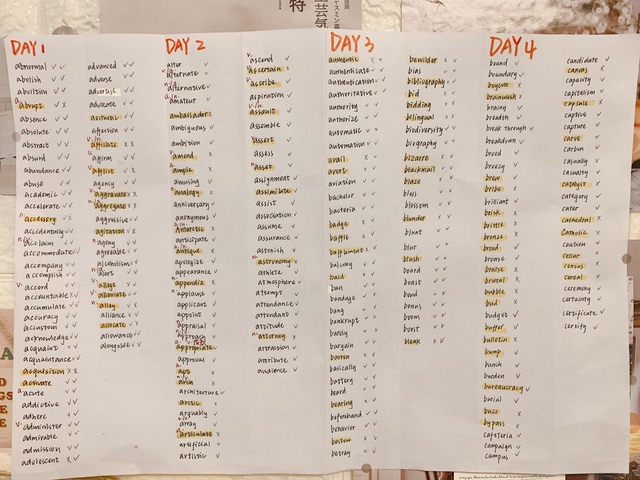 DAY 1
abnormal
abolish
abolition
abrupt
absence
absolute
abstract
absurd
abundance
abuse
academic
accelerate
accessory
accidentally
acclaim
accommodate
accompany
accomplish
accord
accountable
accumulate
accuracy
accustom
acknowledge
acquaint
acquaintance
acquisition
activate
acute
addictive
adhere
administer
admirable
admission
adolescent
advanced
adverse
advertise
advocate
aesthetic
affection
affiliate
affirm
afflict
agency
aggravate
aggregate
aggressive
agitation
agony
agreeable
alcoholism
alert
allege
alleviate
alley
alliance
allocate
allowance
alongside
DAY 2
alter
alternate
alternative
amateur
ambassador
ambiguous
ambition
amend
ample
amusing
analogy
anniversary
anonymous
Antarctic
anticipate
antique
apologize
appearance
appendix
applause
applicant
appoint
appraisal
approach
appropriate
approval
apt
arch
architecture
arctic
arguably
array
articulate
artificial
artistic
ascend
ascertain
ascribe
aspiration
assault
assemble
assert
assess
asset
assignment
assimilate
assist
association
assume
assurance
astonish
astronomy
athlete
atmosphere
attempt
attendance
attendant
attitude
attorney
attraction
attribute
audience
DAY 3
authentic
authenticate
authentication
authoritative
authority
authorize
automatic
automation
avail
avert
aviation
bachelor
bacteria
badge
baffle
bafflement
balcony
bald
ban
bandage
bang
bankrupt
barely
bargain
barren
basically
battery
beard
bearing
beforehand
behavior
bestow
betray
bewilder
bias
bibliography
bid
bidding
bilingual
biodiversity
biography
bizarre
blackmail
blaze
bless
blossom
blunder
blunt
blur
blush
board
boast
bond
bonus
boom
boost
DAY 4
bound
boundary
boycott
brainwash
brainy
breadth
break through
breakdown
breed
breezy
brew
bribe
brilliant
brisk
bristle
bronze
brood
browse
bruise
brutal
bubble
bud
budget
buffer
bulletin
bump
bunch
burden
bureaucracy
burial
buzz
bypass
cafeteria
campaign
campus
candidate
canvas
capacity
capitalism
capsule
captive
capture
carve
carbon
casually
casualty
catalyst
category
cater
cathedral
Catholic
caution
cellar
census
cereal
ceremony
certainty
certificate
certify